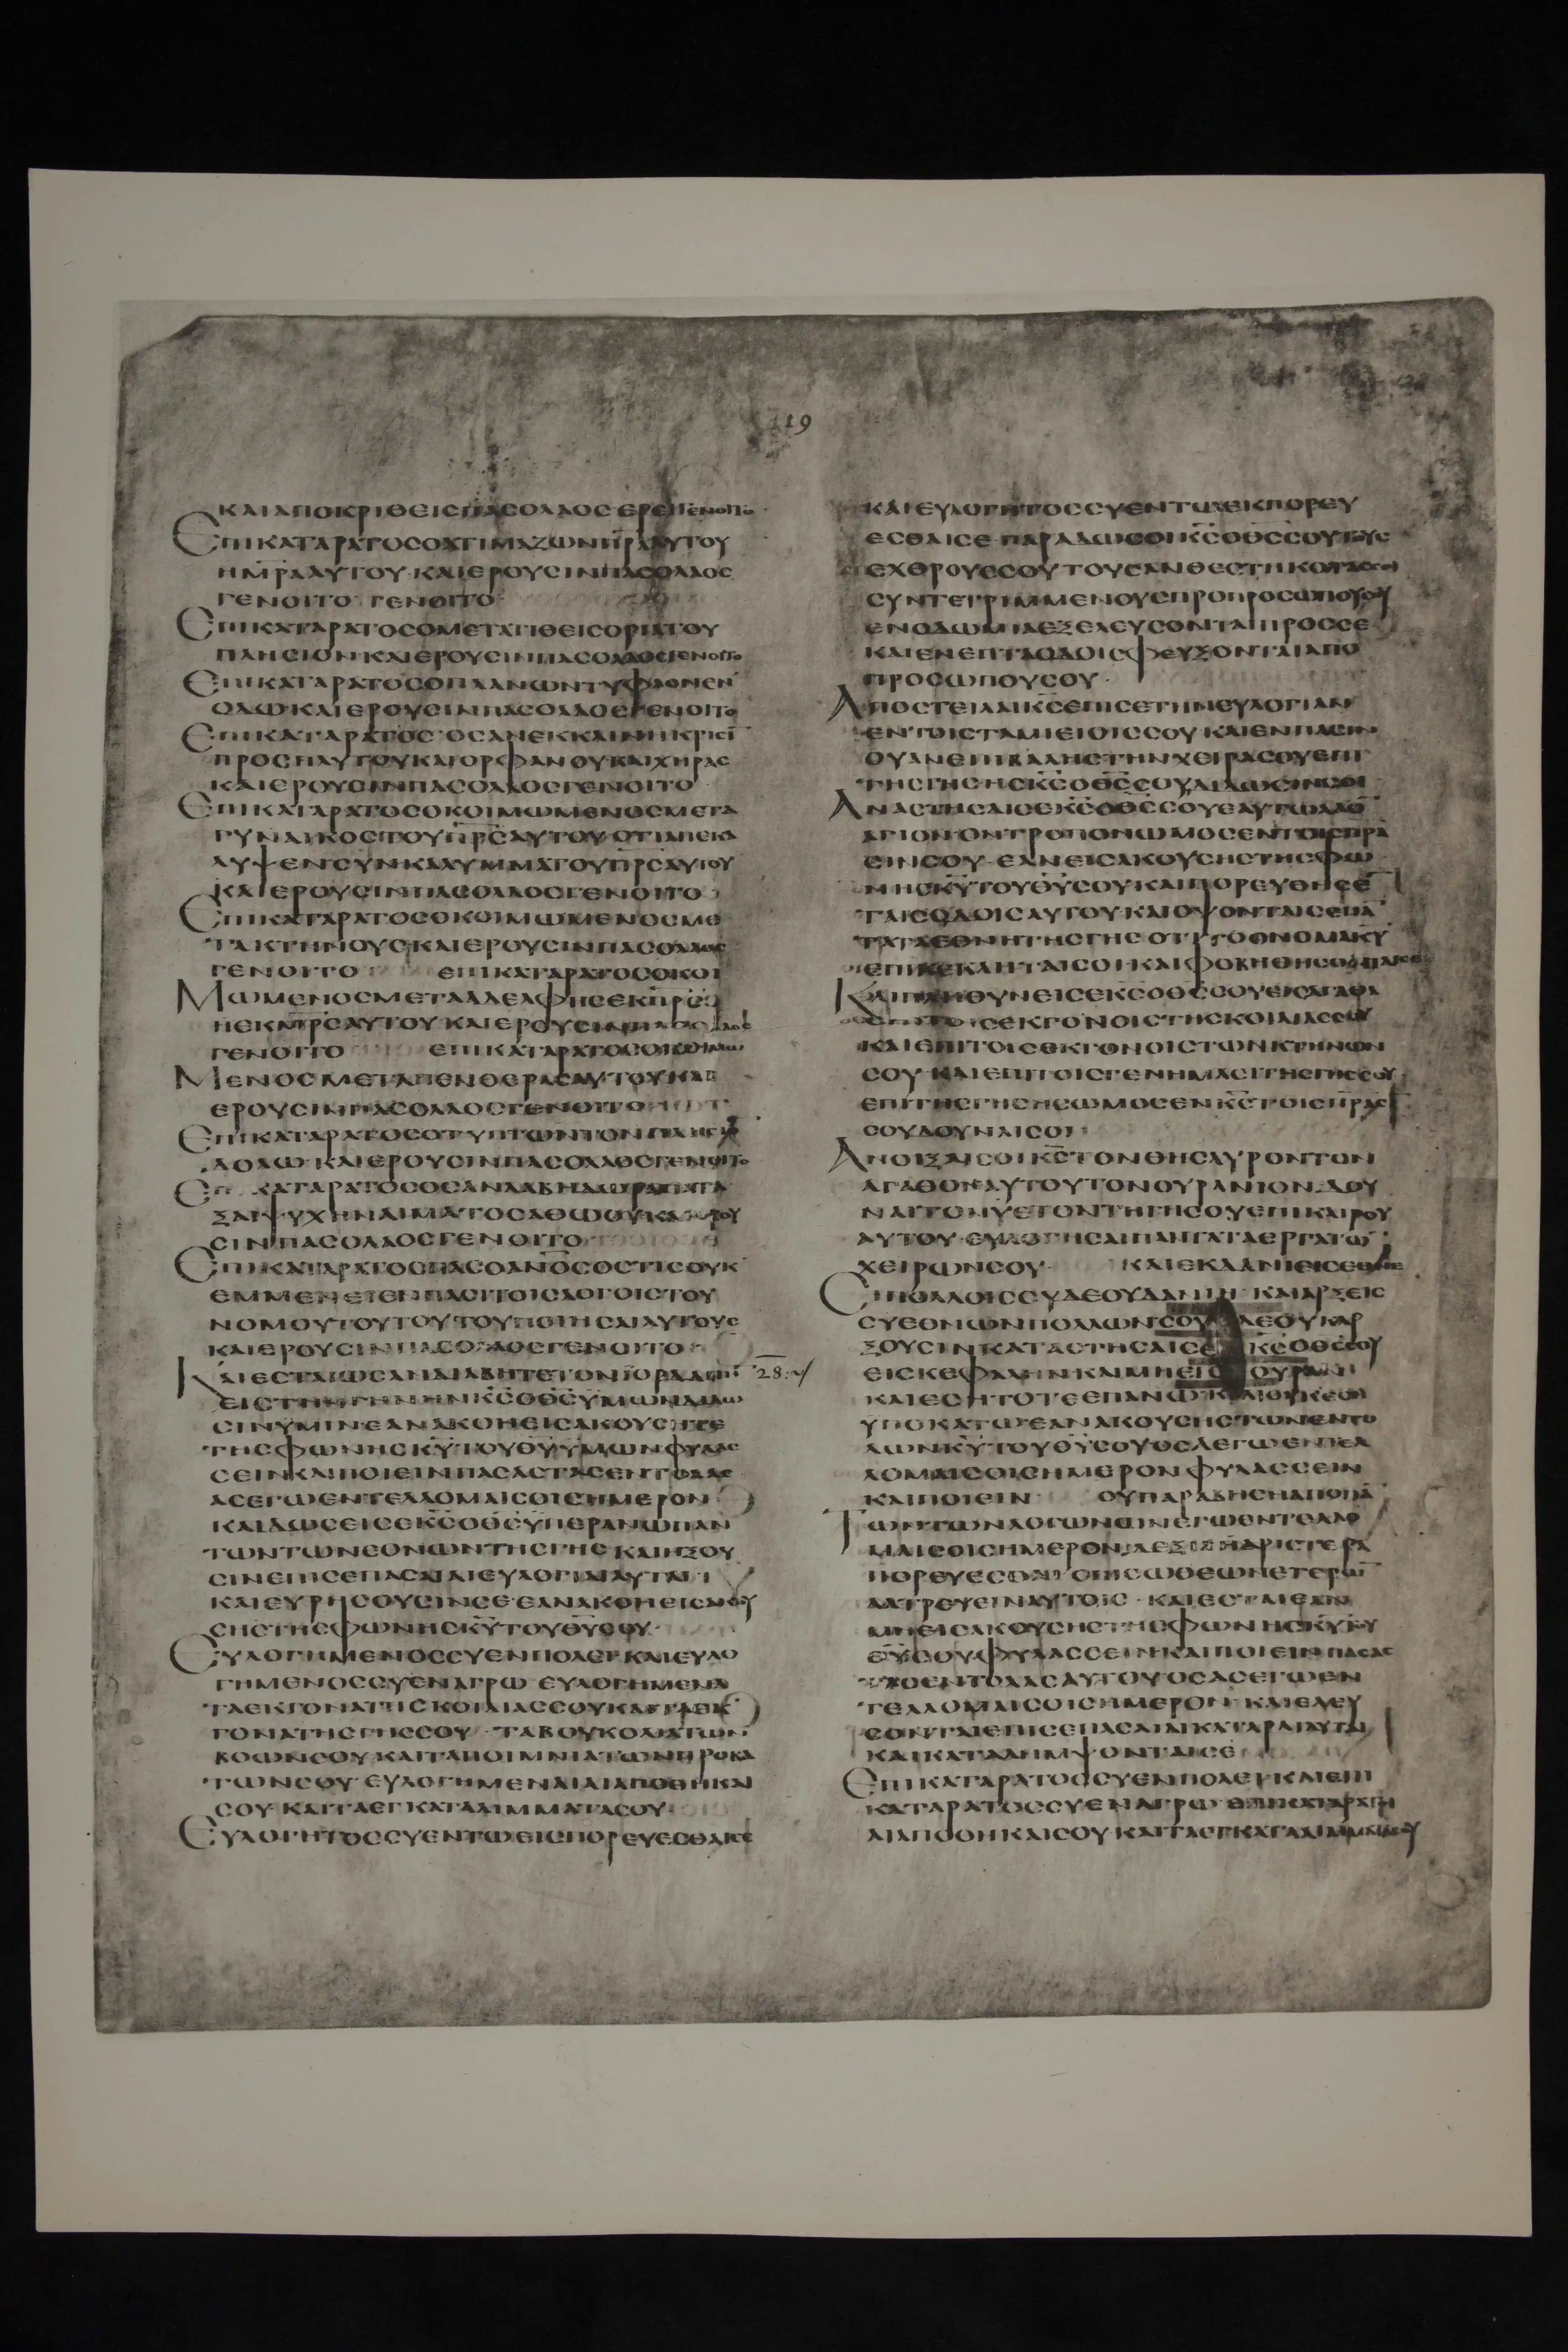 119
ΚΑΙΑΠΟΚΡΙΘΕΙCΠΑCΟΛΑΟCΕΡΕΙΓΕΝΟΙΤΟ
ΕΠΙΚΑΤΑΡΑΤΟCΟΑΤΙΜΑΖΩΝΠΡΑΑΥΤΟΥ
ΗΜΡΑΑΥΤΟΥ·ΚΑΙΕΡΟΥCΙΝΠΑCΟΛΑΟC
ΓΕΝΟΙΤΟ ΓΕΝΟΙΤΟ
ΕΠΙΚΑΤΑΡΑΤΟCΟΜΕΤΑΤΙΘΕΙCΟΡΙΑΤΟΥ
ΠΛΗCΙΟΝΚΑΙΕΡΟΥCΙΝΠΑCΟΛΑΟCΓΕΝΟΙΤΟ
ΕΠΙΚΑΤΑΡΑΤΟCΟΠΛΑΝΩΝΤΥΦΛΟΝΕΝ
ΟΔΩΚΑΙΕΡΟΥCΙΝΠΑCΟΛΑΟCΓΕΝΟΙΤΟ
ΕΠΙΚΑΤΑΡΑΤΟC·ΟCΑΝΕΚΚΛΙΝΗΚΡΙCΙ
ΠΡΟCΗΛΥΤΟΥΚΑΙΟΡΦΑΝΟΥΚΑΙΧΗΡΑC
ΚΑΙΕΡΟΥCΙΝΠΑCΟΛΑΟCΓΕΝΟΙΤΟ
ΕΠΙΚΑΤΑΡΑΤΟCΟΚΟΙΜΩΜΕΝΟCΜΕΤΑ
ΓΥΝΑΙΚΟCΤΟΥΠΡCΑΥΤΟΥ·ΟΤΙΑΠΕΚΑ
ΛΥΨΕΝCΥΝΚΑΛΥΜΜΑΤΟΥΠΡCΑΥΤΟΥ
ΚΑΙΕΡΟΥCΙΝΠΑCΟΛΑΟCΓΕΝΟΙΤΟ
ΕΠΙΚΑΤΑΡΑΤΟCΟΚΟΙΜΩΜΕΝΟCΜΕ
ΤΑΚΤΗΝΟΥCΚΑΙΕΡΟΥCΙΝΠΑCΟΛΑΟC
ΓΕΝΟΙΤΟ ΕΠΙΚΑΤΑΡΑΤΟCΟΚΟΙ
ΜΩΜΕΝΟCΜΕΤΑΑΔΕΛΦΗCΕΚΠΡC
ΗΕΚΜΡCΑΥΤΟΥ·ΚΑΙΕΡΟΥCΙΝΠΑCΟΛΑΟC
ΓΕΝΟΙΤΟ ΕΠΙΚΑΤΑΡΑΤΟCΟΚΟΙΜΩ
ΜΕΝΟCΜΕΤΑΠΕΝΘΕΡΑCΑΥΤΟΥΚΑΙ
ΕΡΟΥCΙΝΠΑCΟΛΑΟCΓΕΝΟΙΤΟ
ΕΠΙΚΑΤΑΡΑΤΟCΟΤΥΠΤΩΝΤΟΝΠΛΗCΙΟ
ΔΟΛΩ·ΚΑΙΕΡΟΥCΙΝΠΑCΟΛΑΟCΓΕΝΟΙΤΟ
ΕΠΙΚΑΤΑΡΑΤΟCΟCΑΝΛΑΒΗΔΩΡΑΠΑΤΑ
ΞΑΙΨΥΧΗΝΑΙΜΑΤΟCΑΘΩΟΥΚΑΙΕΡΟΥ
CΙΝΠΑCΟΛΑΟCΓΕΝΟΙΤΟ
ΕΠΙΚΑΤΑΡΑΤΟCΠΑCΟΑΝΟCΟCΤΙCΟΥΚ
ΕΜΜΕΝΕΙΕΝΠΑCΙΤΟΙCΛΟΓΟΙCΤΟΥ
ΝΟΜΟΥΤΟΥΤΟΥΤΟΥΠΟΙΗCΑΙΑΥΤΟΥC
ΚΑΙΕΡΟΥCΙΝΠΑCΟΛΑΟCΓΕΝΟΙΤΟ
ΚΑΙΕCΤΑΙΩCΑΝΔΙΑΒΗΤΕΤΟΝΙΟΡΔΑΝΗ 28:
ΕΙCΤΗΝΓΗΝΗΝΚCΟΘCΥΜΩΝΔΙΔΩ
CΙΝΥΜΙΝΕΑΝΑΚΟΗΕΙCΑΚΟΥCΗΤΕ
ΤΗCΦΩΝΗCΚΥΤΟΥΘΥΥΜΩΝΦΥΛΑC
CΕΙΝΚΑΙΠΟΙΕΙΝΠΑCΑCΤΑCΕΝΤΟΛΑC
ΑCΕΓΩΕΝΤΕΛΛΟΜΑΙCΟΙCΗΜΕΡΟΝ
ΚΑΙΔΩCΕΙCΕΚCΟΘCΥΠΕΡΑΝΩΠΑΝ
ΤΩΝΤΩΝΕΘΝΩΝΤΗCΓΗCΚΑΙΗΞΟΥ
CΙΝΕΠΙCΕΠΑCΑΙΑΙΕΥΛΟΓΙΑΙΑΥΤΑΙ
ΚΑΙΕΥΡΗCΟΥCΙΝCΕ·ΕΑΝΑΚΟΗΕΙCΑΚΟΥ
CΗCΤΗCΦΩΝΗCΚΥΤΟΥΘΥCΟΥ
ΕΥΛΟΓΗΜΕΝΟCCΥΕΝΠΟΛΕΙ·ΚΑΙΕΥΛΟ
ΓΗΜΕΝΟCCΥΕΝΑΓΡΩ·ΕΥΛΟΓΗΜΕΝΑ
ΤΑΕΚΓΟΝΑΤΗCΚΟΙΛΙΑCCΟΥΚΑΙΤΑΕΚ
ΓΟΝΑΤΗCΓΗCCΟΥ ΤΑΒΟΥΚΟΛΙΑΤΩΝ
ΒΟΩΝCΟΥ·ΚΑΙΤΑΠΟΙΜΝΙΑΤΩΝΠΡΟΒΑ
ΤΩΝCΟΥ·ΕΥΛΟΓΗΜΕΝΑΙΑΙΑΠΟΘΗΚΑΙ
CΟΥ·ΚΑΙΤΑΕΓΚΑΤΑΛΙΜΜΑΤΑCΟΥ
ΕΥΛΟΓΗΤΟCCΥΕΝΤΩΕΙCΠΟΡΕΥΕCΘΑΙCΕ
ΚΑΙΕΥΛΟΓΗΤΟCCΥΕΝΤΩΕΚΠΟΡΕΥ
ΕCΘΑΙCΕ·ΠΑΡΑΔΩCΟΙΚCΟΘCCΟΥΤΟΥC
ΕΧΘΡΟΥCCΟΥΤΟΥCΑΝΘΕCΤΗΚΟΤΑC
CΥΝΤΕΤΡΙΜΜΕΝΟΥCΠΡΟΠΡΟCΩΠΟΥCΟΥ
ΕΝΟΔΩΜΙΑΕΞΕΛΕΥCΟΝΤΑΙΠΡΟCCΕ
ΚΑΙΕΝΕΠΤΑΟΔΟΙCΦΕΥΞΟΝΤΑΙΑΠΟ
ΠΡΟCΩΠΟΥCΟΥ·
ΑΠΟCΤΕΙΛΑΙΚCΕΠΙCΕΤΗΝΕΥΛΟΓΙΑΝ
ΕΝΤΟΙCΤΑΜΙΕΙΟΙCCΟΥ·ΚΑΙΕΝΠΑCΙΝ
ΟΥΑΝΕΠΙΒΑΛΗCΤΗΝΧΕΙΡΑCΟΥΕΠΙ
ΤΗCΓΗCΗCΚCΟΘCCΟΥΔΙΔΩCΙΝCΟΙ
ΑΝΑCΤΗCΑΙCΕΚCΟΘCCΟΥΕΑΥΤΩΛΑΟ
ΑΓΙΟΝΟΝΤΡΟΠΟΝΩΜΟCΕΝΤΟΙCΠΡΑ
CΙΝCΟΥ·ΕΑΝΕΙCΑΚΟΥCΗCΤΗCΦΩ
ΝΗCΚΥΤΟΥΘΥCΟΥΚΑΙΠΟΡΕΥΘΗCΕ
ΤΑΙCΟΔΟΙCΑΥΤΟΥ·ΚΑΙΟΨΟΝΤΑΙCΕΠΑ
ΤΑΤΑΕΘΝΗΤΗCΓΗC·ΟΤΙΤΟΟΝΟΜΑΚΥ
ΕΠΙΚΕΚΛΗΤΑΙCΟΙΚΑΙΦΟΒΗΘΗCΟΝΤΑΙCΕ
ΚΑΙΠΛΗΘΥΝΕΙCΕΚCΟΘCCΟΥΕΙCΑΓΑΘΑ
ΕΠΙΤΟΙCΕΚΓΟΝΟΙCΤΗCΚΟΙΛΙΑCCΟΥ
ΚΑΙΕΠΙΤΟΙCΕΚΓΟΝΟΙCΤΩΝΚΤΗΝΩΝ
CΟΥ·ΚΑΙΕΠΙΤΟΙCΓΕΝΗΜΑCΙΤΗCΓΗCCΟΥ
ΕΠΙΤΗCΓΗCΗCΩΜΟCΕΝΚCΤΟΙCΠΡΑCΙ
CΟΥΔΟΥΝΑΙCΟΙ
ΑΝΟΙΞΑΙCΟΙΚCΤΟΝΘΗCΑΥΡΟΝΤΟΝ
ΑΓΑΘΟΝΑΥΤΟΥΤΟΝΟΥΡΑΝΙΟΝ·ΔΟΥ
ΝΑΙΤΟΝΥΕΤΟΝΤΗΓΗCΟΥΕΠΙΚΑΙΡΟΥ
ΑΥΤΟΥ·ΕΥΛΟΓΗCΑΙΠΑΝΤΑΤΑΕΡΓΑΤΩ
ΧΕΙΡΩΝCΟΥ ΚΑΙΕΚΔΑΝΙΕΙCΕΘΝΕ
CΙΠΟΛΛΟΙCCΥΔΕΟΥΔΑΝΙΗ·ΚΑΙΑΡΞΕΙC
CΥΕΘΝΩΝΠΟΛΛΩΝCΟΥ ΔΕΟΥΚΑΡ
ΞΟΥCΙΝΚΑΤΑCΤΗCΑΙCΕ ΚCΟΘCCΟΥ
ΕΙCΚΕΦΑΛΗΝΚΑΙΜΗΕΙC ΟΥΡΑΝ
ΚΑΙΕCΗΤΟΤΕΕΠΑΝΩΚΑΙΟΥΚΕCΗ
ΥΠΟΚΑΤΩ·ΕΑΝΑΚΟΥCΗCΤΩΝΕΝΤΟ
ΛΩΝΚΥΤΟΥΘΥCΟΥΟCΑΕΓΩΕΝΤΕΛ
ΛΟΜΑΙCΟΙCΗΜΕΡΟΝΦΥΛΑCCΕΙΝ
ΚΑΙΠΟΙΕΙΝ ΟΥΠΑΡΑΒΗCΗΑΠΟΠΑ
ΤΩΝΤΩΝΛΟΓΩΝΩΝΕΓΩΕΝΤΕΛΛΟ
ΜΑΙCΟΙCΗΜΕΡΟΝΔΕΞΙΑΗΑΡΙCΤΕΡΑ
ΠΟΡΕΥΕCΘΑΙΟΠΙCΩΘΕΩΝΕΤΕΡΩΝ
ΛΑΤΡΕΥΕΙΝΑΥΤΟΙC·ΚΑΙΕCΤΑΙΕΑΝ
ΜΗΕΙCΑΚΟΥCΗCΤΗCΦΩΝΗCΚΥΤΟΥ
ΘΥCΟΥΦΥΛΑCCΕΙΝΚΑΙΠΟΙΕΙΝΠΑCΑC
ΤΑCΕΝΤΟΛΑCΑΥΤΟΥ·ΟCΑCΕΓΩΕΝ
ΤΕΛΛΟΜΑΙCΟΙCΗΜΕΡΟΝ·ΚΑΙΕΛΕΥ
CΟΝΤΑΙΕΠΙCΕΠΑCΑΙΑΙΚΑΤΑΡΑΙΑΥΤΑΙ
ΚΑΙΚΑΤΑΛΗΜΨΟΝΤΑΙCΕ
ΕΠΙΚΑΤΑΡΑΤΟCCΥΕΝΠΟΛΕΙ·ΚΑΙΕΠΙ
ΚΑΤΑΡΑΤΟCCΥΕΝΑΓΡΩ·ΕΠΙΚΑΤΑΡΑΤΟΙ
ΑΙΑΠΟΘΗΚΑΙCΟΥ·ΚΑΙΤΑΕΓΚΑΤΑΛΙΜΜΑΤΑCΟΥ